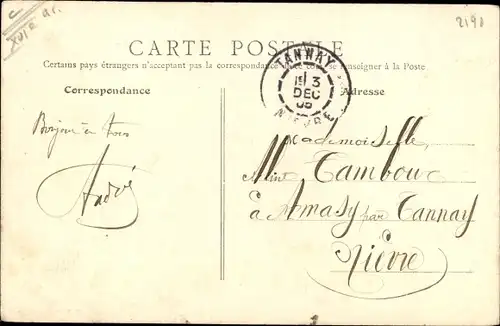 2190
CARTE POSTALE
Certains pays étrangers n'acceptent pas la correspondance se renseigner à la Poste
TANNAY
13
DEC
05
NIÈVRE
Correspondance
Adresse
Bonjour à tous
André
Mademoiselle
Tambour
à Amasy par Tannay
Nièvre